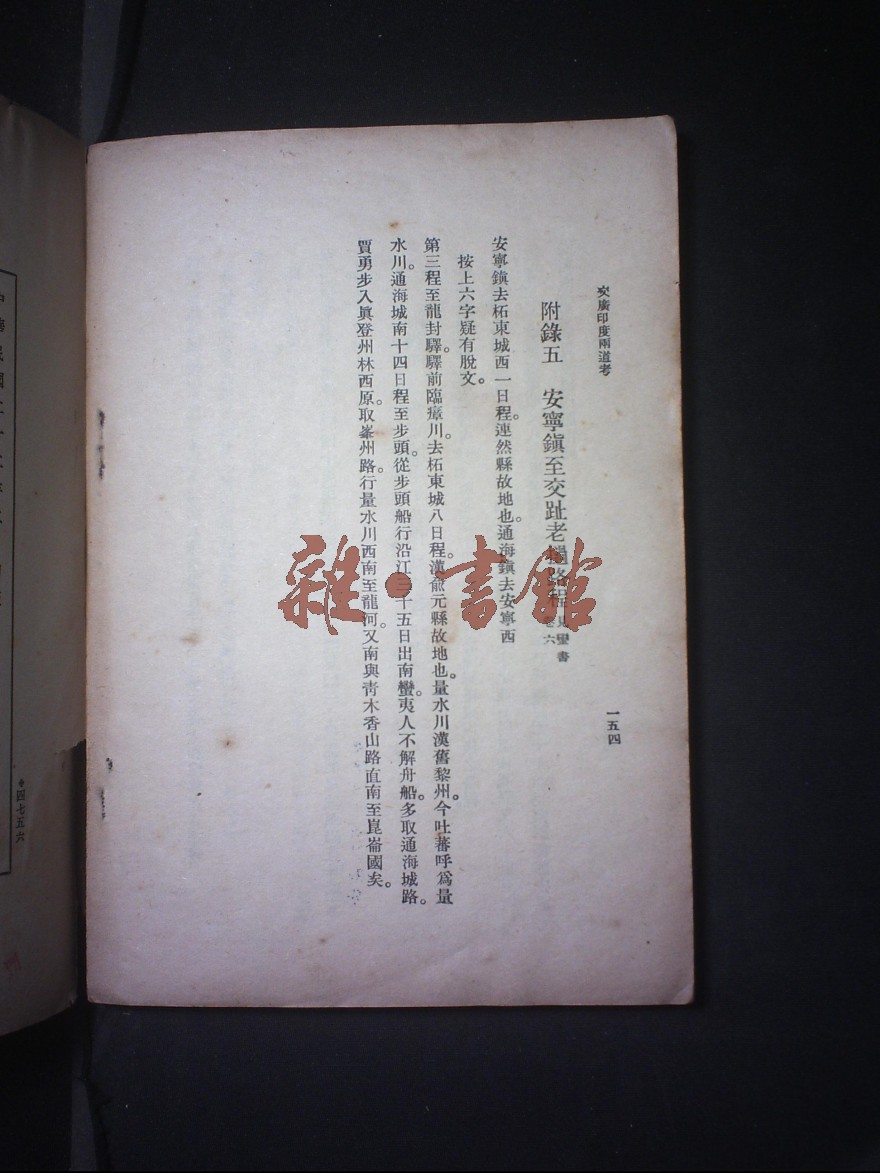 交廣印度兩道考
一五四
附錄五　安寧鎮至交趾老撾路程
見蠻書
卷六
安寧鎮去柘東城西一日程。連然縣故地也。通海鎮去安寧西
按上六字疑有脫文。
第三程至龍封驛。驛前臨瘴川。去柘東城八日程。漢俞元縣故地也。量水川漢舊黎州。今吐蕃呼爲量
水川。通海城南十四日程至步頭。從步頭船行沿江三十五日出南蠻。夷人不解舟船。多取通海城路。
賈勇步入眞登州林西原。取峯州路。行量水川西南至龍河。又南與青木香山路直南至崑崙國矣。
雜·書館
四七五六